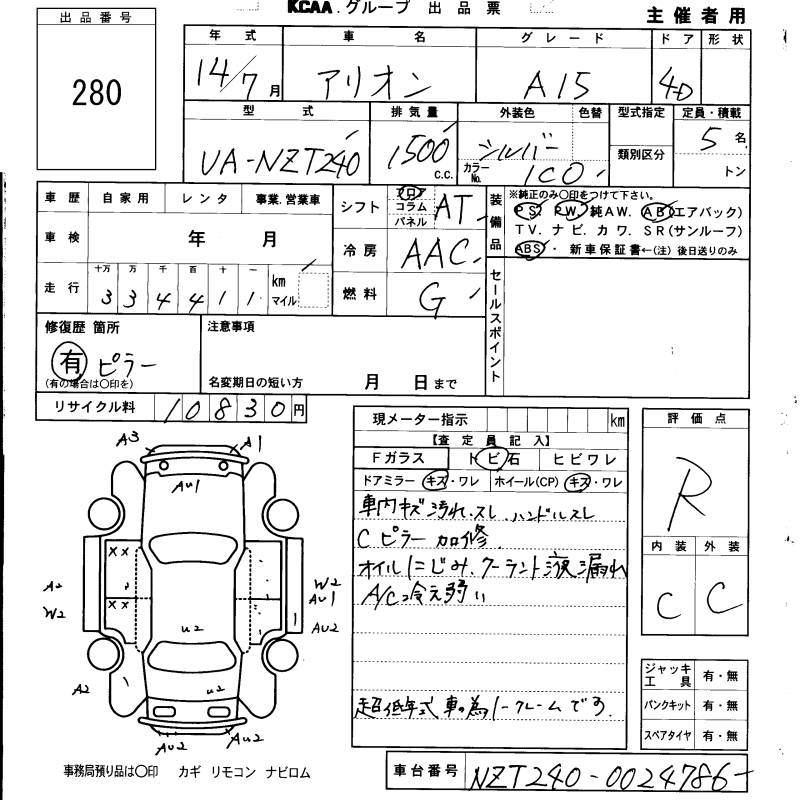 KCAA.グループ 出品票
主催者用
出品番号
280
年式 車名 グレード ドア 形状
14/7月 アリオン A15 4D
型式 排気量 外装色 色替 型式指定 定員・積載
UA-NZT240 1500 c.c. シルバー カラーNo. 1C0 類別区分 5名 トン
車歴 自家用 レンタ 事業.営業車
車検 年 月
走行 十万 万 千 百 十 一 km マイル
3 3 4 4 1 1
シフト フロア コラム パネル AT
冷房 AAC
燃料 G
装備品
※純正のみ〇印をつけて下さい。
PS. PW. 純AW. AB(エアバック)
TV. ナビ. カワ. SR(サンルーフ)
ABS・ 新車保証書←(注) 後日送りのみ
セールスポイント
修復歴 箇所
有 ピラー
(有の場合は〇印を)
注意事項
名変期日の短い方 月 日まで
リサイクル料 10830円
現メーター指示 km
【査定員記入】
Fガラス トビ石 ヒビワレ
ドアミラー キズ・ワレ ホイール(CP) キズ・ワレ
車内キズ汚れ.スレ ハンドルスレ
Cピラー加修
オイルにじみ.クーラント液漏れ
A/C冷え弱い
超低年式車の為ノークレームです.
評価点
R
内装 外装
C C
ジャッキ工具 有・無
パンクキット 有・無
スペアタイヤ 有・無
A3 A1
AU1
XX
XX
A2 W2
W2 AU1
U2 AU2
A2 U2
AU2 AU2
事務局預り品は〇印 カギ リモコン ナビロム
車台番号 NZT240-0024786